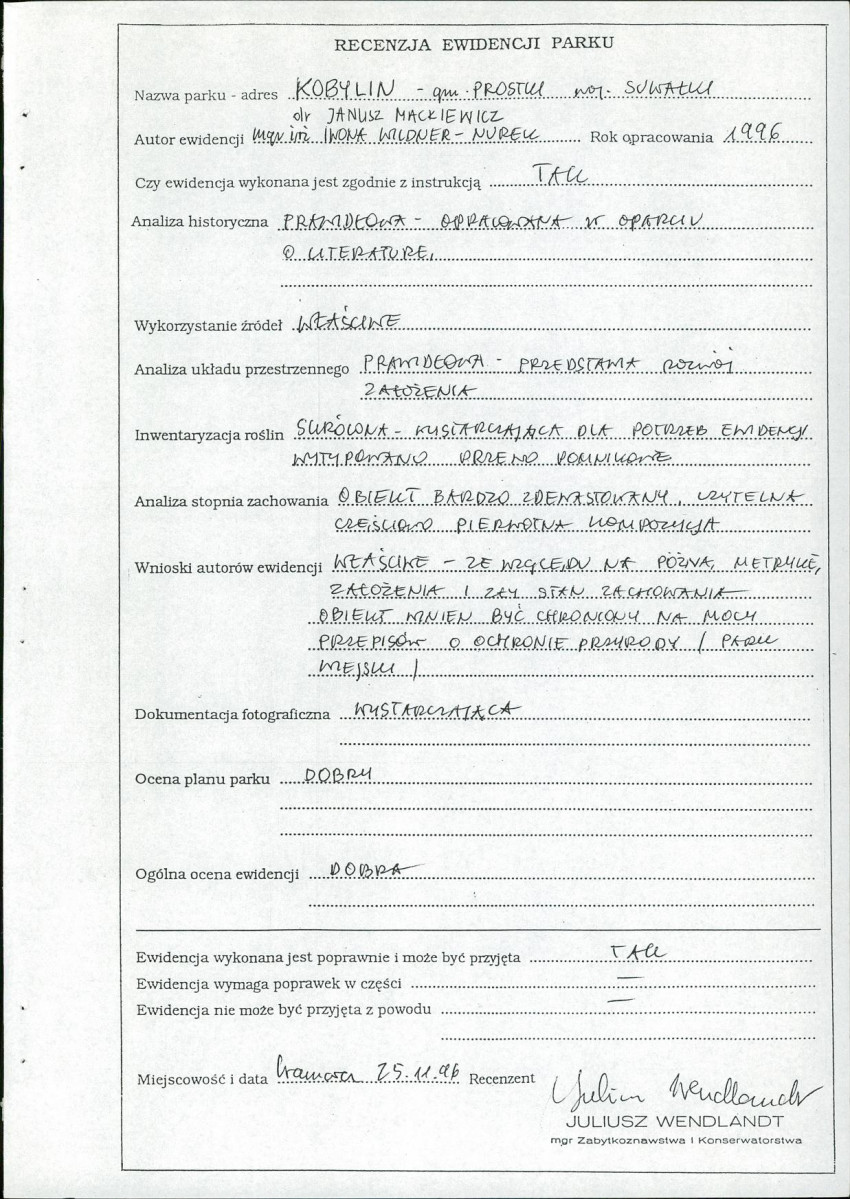 RECENZJA EWIDENCJI PARKU
Nazwa parku - adres KOBYLIN - gm. PROSTKI woj. SUWAŁKI
dr JANUSZ MACKIEWICZ
Autor ewidencji mgr inż IWONA WILDNER-NUREK Rok opracowania 1996
Czy ewidencja wykonana jest zgodnie z instrukcją TAK
Analiza historyczna PRAWIDŁOWA - OPRACOWANA W OPARCIU
O LITERATURĘ.
Wykorzystanie źródeł WŁAŚCIWE
Analiza układu przestrzennego PRAWIDŁOWA - PRZEDSTAWIA rozwój
ZAŁOŻENIA
Inwentaryzacja roślin SKRÓCONA - WYSTARCZAJĄCA DLA POTRZEB EWIDENCJI
WYTYPOWANO DRZEWO POMNIKOWE
Analiza stopnia zachowania OBIEKT BARDZO ZDEWASTOWANY, CZYTELNA
CZĘŚCIOWO PIERWOTNA KOMPOZYCJA
Wnioski autorów ewidencji WŁAŚCIWE - ZE WZGLĘDU NA PÓŹNĄ METRYKĘ,
ZAŁOŻENIA I ZŁY STAN ZACHOWANIA
OBIEKT WINIEN BYĆ CHRONIONY NA MOCY
PRZEPISÓW O OCHRONIE PRZYRODY / PARK
WIEJSKI /
Dokumentacja fotograficzna WYSTARCZAJĄCA
Ocena planu parku DOBRY
Ogólna ocena ewidencji DOBRA
Ewidencja wykonana jest poprawnie i może być przyjęta TAK
Ewidencja wymaga poprawek w części —
Ewidencja nie może być przyjęta z powodu —
Miejscowość i data Warszawa 25.11.96 Recenzent
Juliusz Wendlandt
JULIUSZ WENDLANDT
mgr Zabytkoznawstwa i Konserwatorstwa